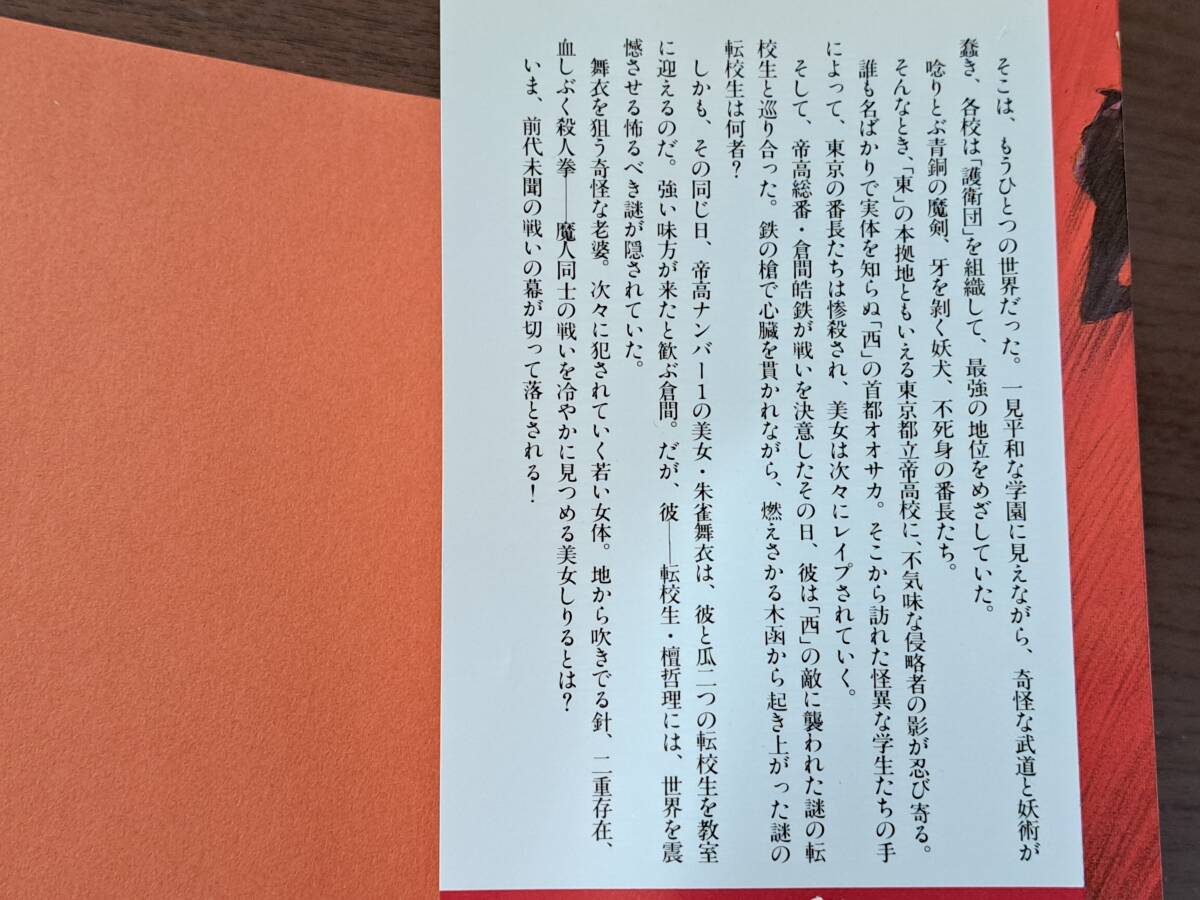 そこは、もうひとつの世界だった。一見平和な学園に見えながら、奇怪な武道と妖術が
蠢き、各校は「護衛団」を組織して、最強の地位をめざしていた。
唸りとぶ青銅の魔剣、牙を剝く妖犬、不死身の番長たち。
そんなとき、「東」の本拠地ともいえる東京都立帝高校に、不気味な侵略者の影が忍び寄る。
誰も名ばかりで実体を知らぬ「西」の首都オオサカ。そこから訪れた怪異な学生たちの手
によって、東京の番長たちは惨殺され、美女は次々にレイプされていく。
そして、帝高総番・倉間皓鉄が戦いを決意したその日、彼は「西」の敵に襲われた謎の転
校生と巡り合った。鉄の槍で心臓を貫かれながら、燃えさかる木函から起き上がった謎の
転校生は何者？
しかも、その同じ日、帝高ナンバー1の美女・朱雀舞衣は、彼と瓜二つの転校生を教室
に迎えるのだ。強い味方が来たと歓ぶ倉間。だが、彼──転校生・檀哲理には、世界を震
憾させる怖るべき謎が隠されていた。
舞衣を狙う奇怪な老婆。次々に犯されていく若い女体。地から吹きでる針、二重存在、
血しぶく殺人拳──魔人同士の戦いを冷やかに見つめる美女しりるとは？
いま、前代未聞の戦いの幕が切って落とされる！